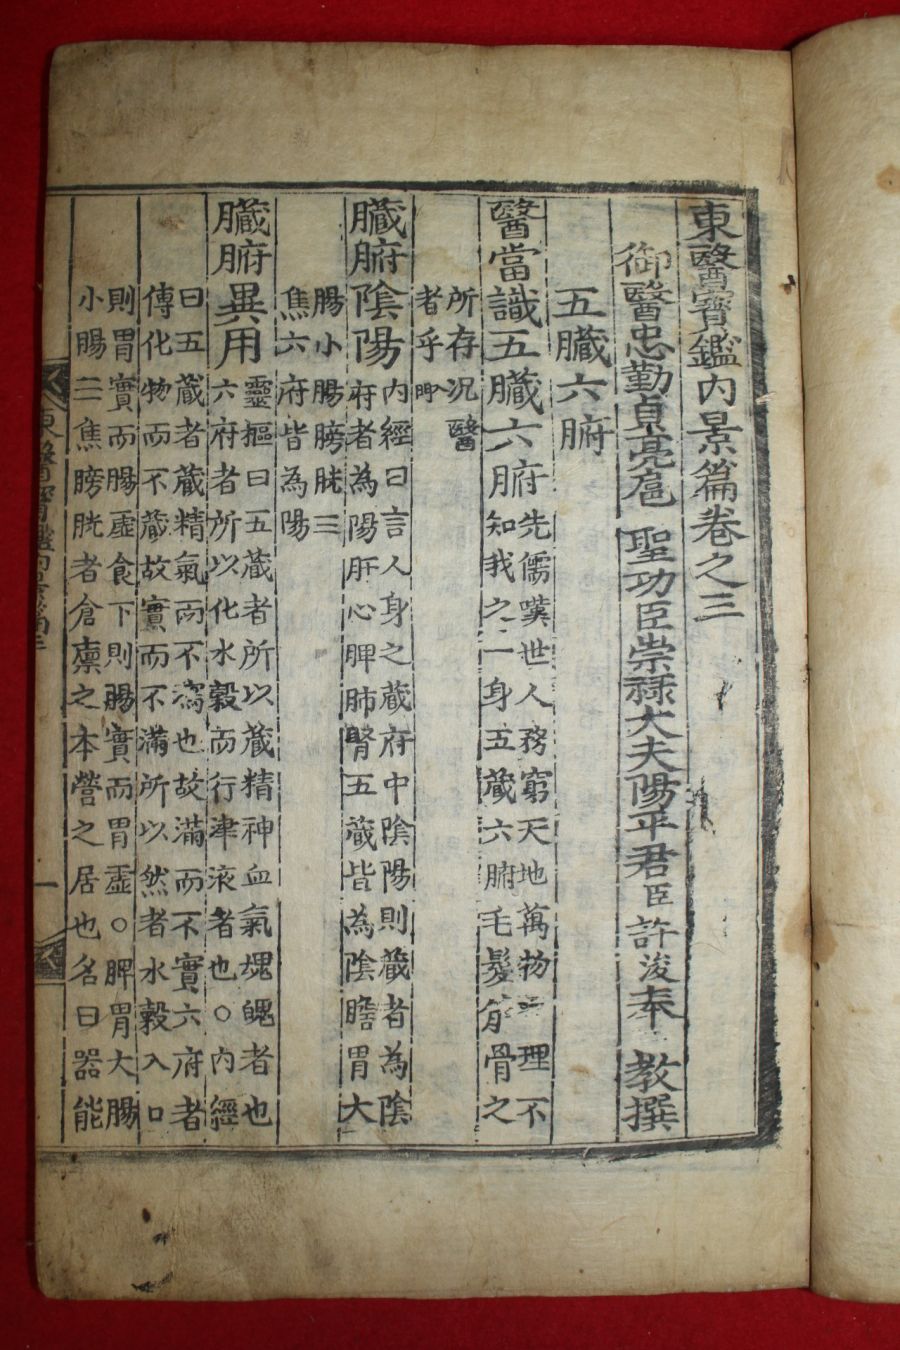 東醫寶鑑內景篇卷之三
御醫忠勤貞亮扈 聖功臣崇祿大夫陽平君臣許浚奉 敎撰
五臟六腑
醫當識五臟六腑
先儒嘆世人務窮天地萬物之理不
知我之一身五藏六腑毛髮筋骨之
所存況醫
者乎
臟腑陰陽
內經曰言人身之藏府中陰陽則藏者為陰
府者為陽肝心脾肺腎五藏皆為陰膽胃大
腸小腸膀胱三
焦六府皆為陽
臟腑異用
靈樞曰五藏者所以藏精神血氣魂魄者也
六府者所以化水穀而行津液者也○內經
曰五藏者藏精氣而不瀉也故滿而不實六府者
傳化物而不藏故實而不滿所以然者水穀入口
則胃實而腸虛食下則腸實而胃虛○脾胃大腸
小腸三焦膀胱者倉廩之本營之居也名曰器能
東醫寶鑑內景篇三
一